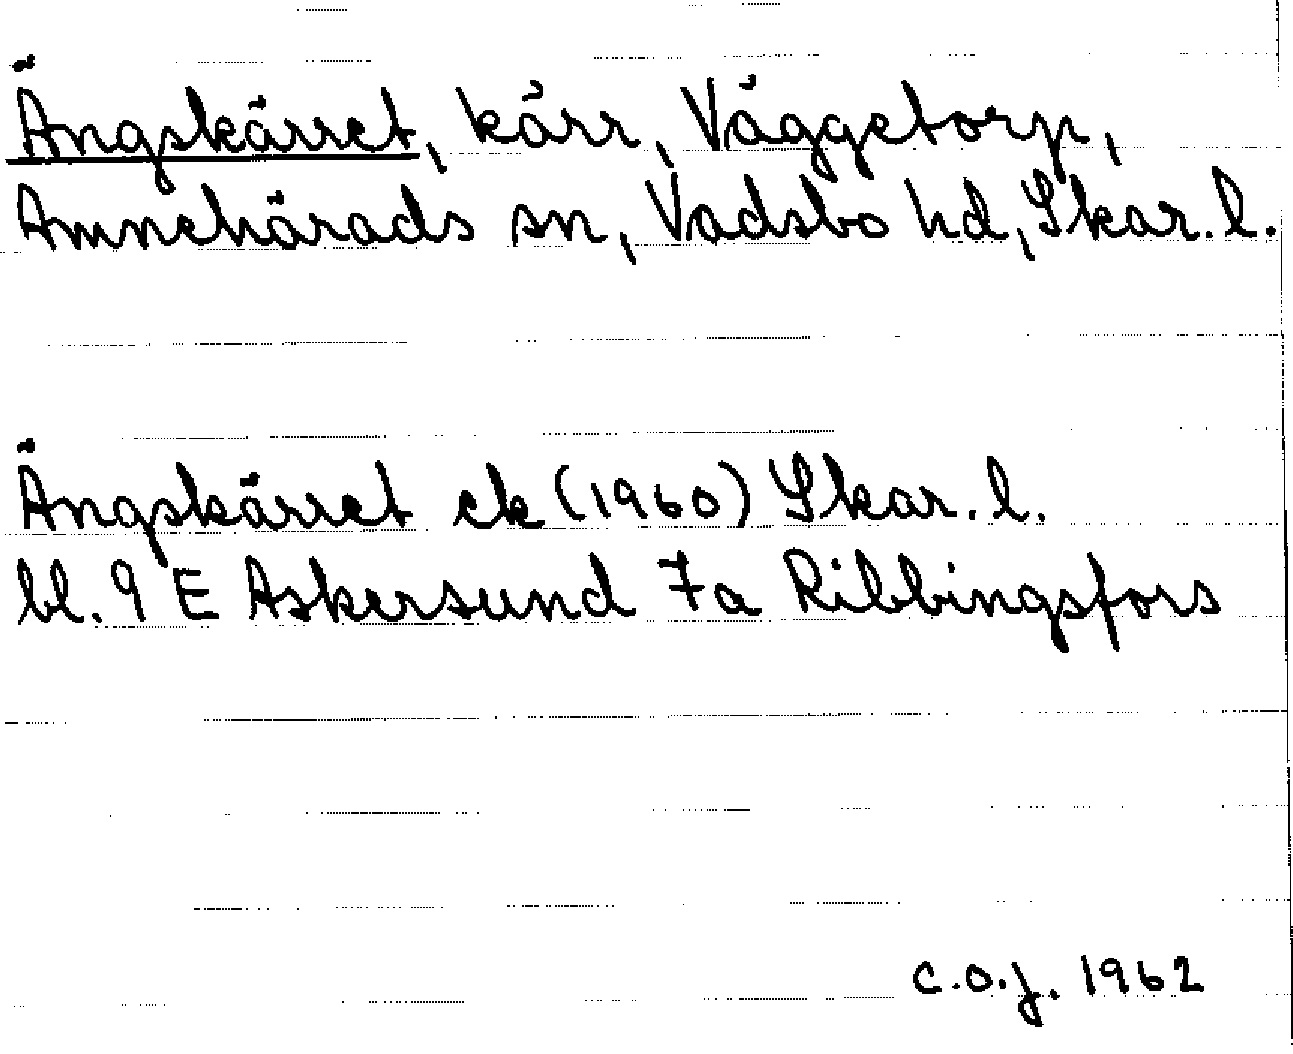 Ängskärret, kärr, Väggetorp,
Amnehärads sn, Vadsbo hd, Skar. l.
Ängskärret ek (1960) Skar. l.
bl. 9 E Askersund 7a Ribbingsfors
C.O.J. 1962